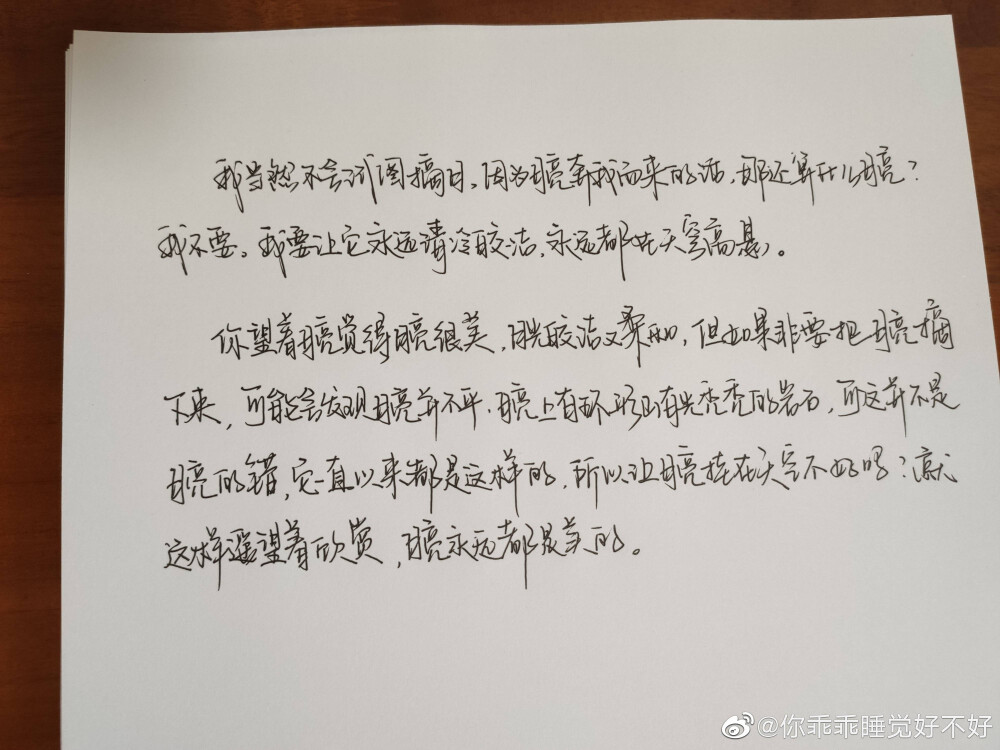 我当然不会试图摘月,因为月亮奔我而来的话,那还算什么月亮?
我不要。我要让它永远清冷皎洁,永远都在天空高悬。
你望着月亮觉得月亮很美,月光皎洁又柔和,但如果非要把月亮摘
下来,可能会发现月亮并不平.月亮上有环形山有光秃秃的岩石,可这并不是
月亮的错,它一直以来都是这样的,所以让月亮挂在天空不好吗?就
这样遥望着欣赏,月亮永远都是美的。
@你乖乖睡觉好不好